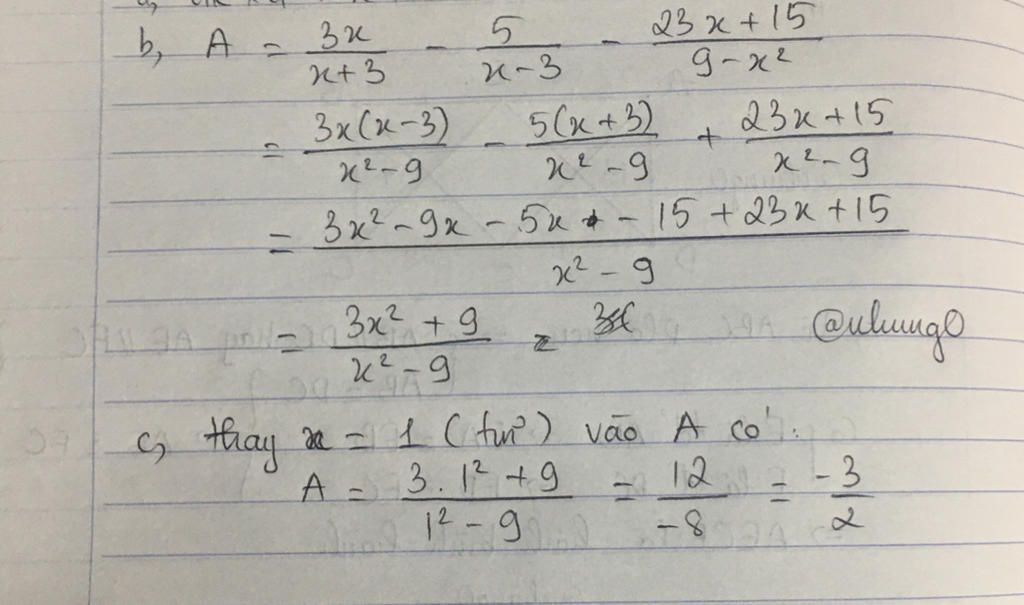 b, A = 3x/(x+3) - 5/(x-3) - (23x+15)/(9-x²)
= 3x(x-3)/(x²-9) - 5(x+3)/(x²-9) + (23x+15)/(x²-9)
= (3x²-9x-5x - 15+23x+15)/(x²-9)
= (3x²+9)/(x²-9) =
c, thay x = 1 (tm) vào A có:
A = (3.1²+9)/(1²-9) = 12/-8 = -3/2